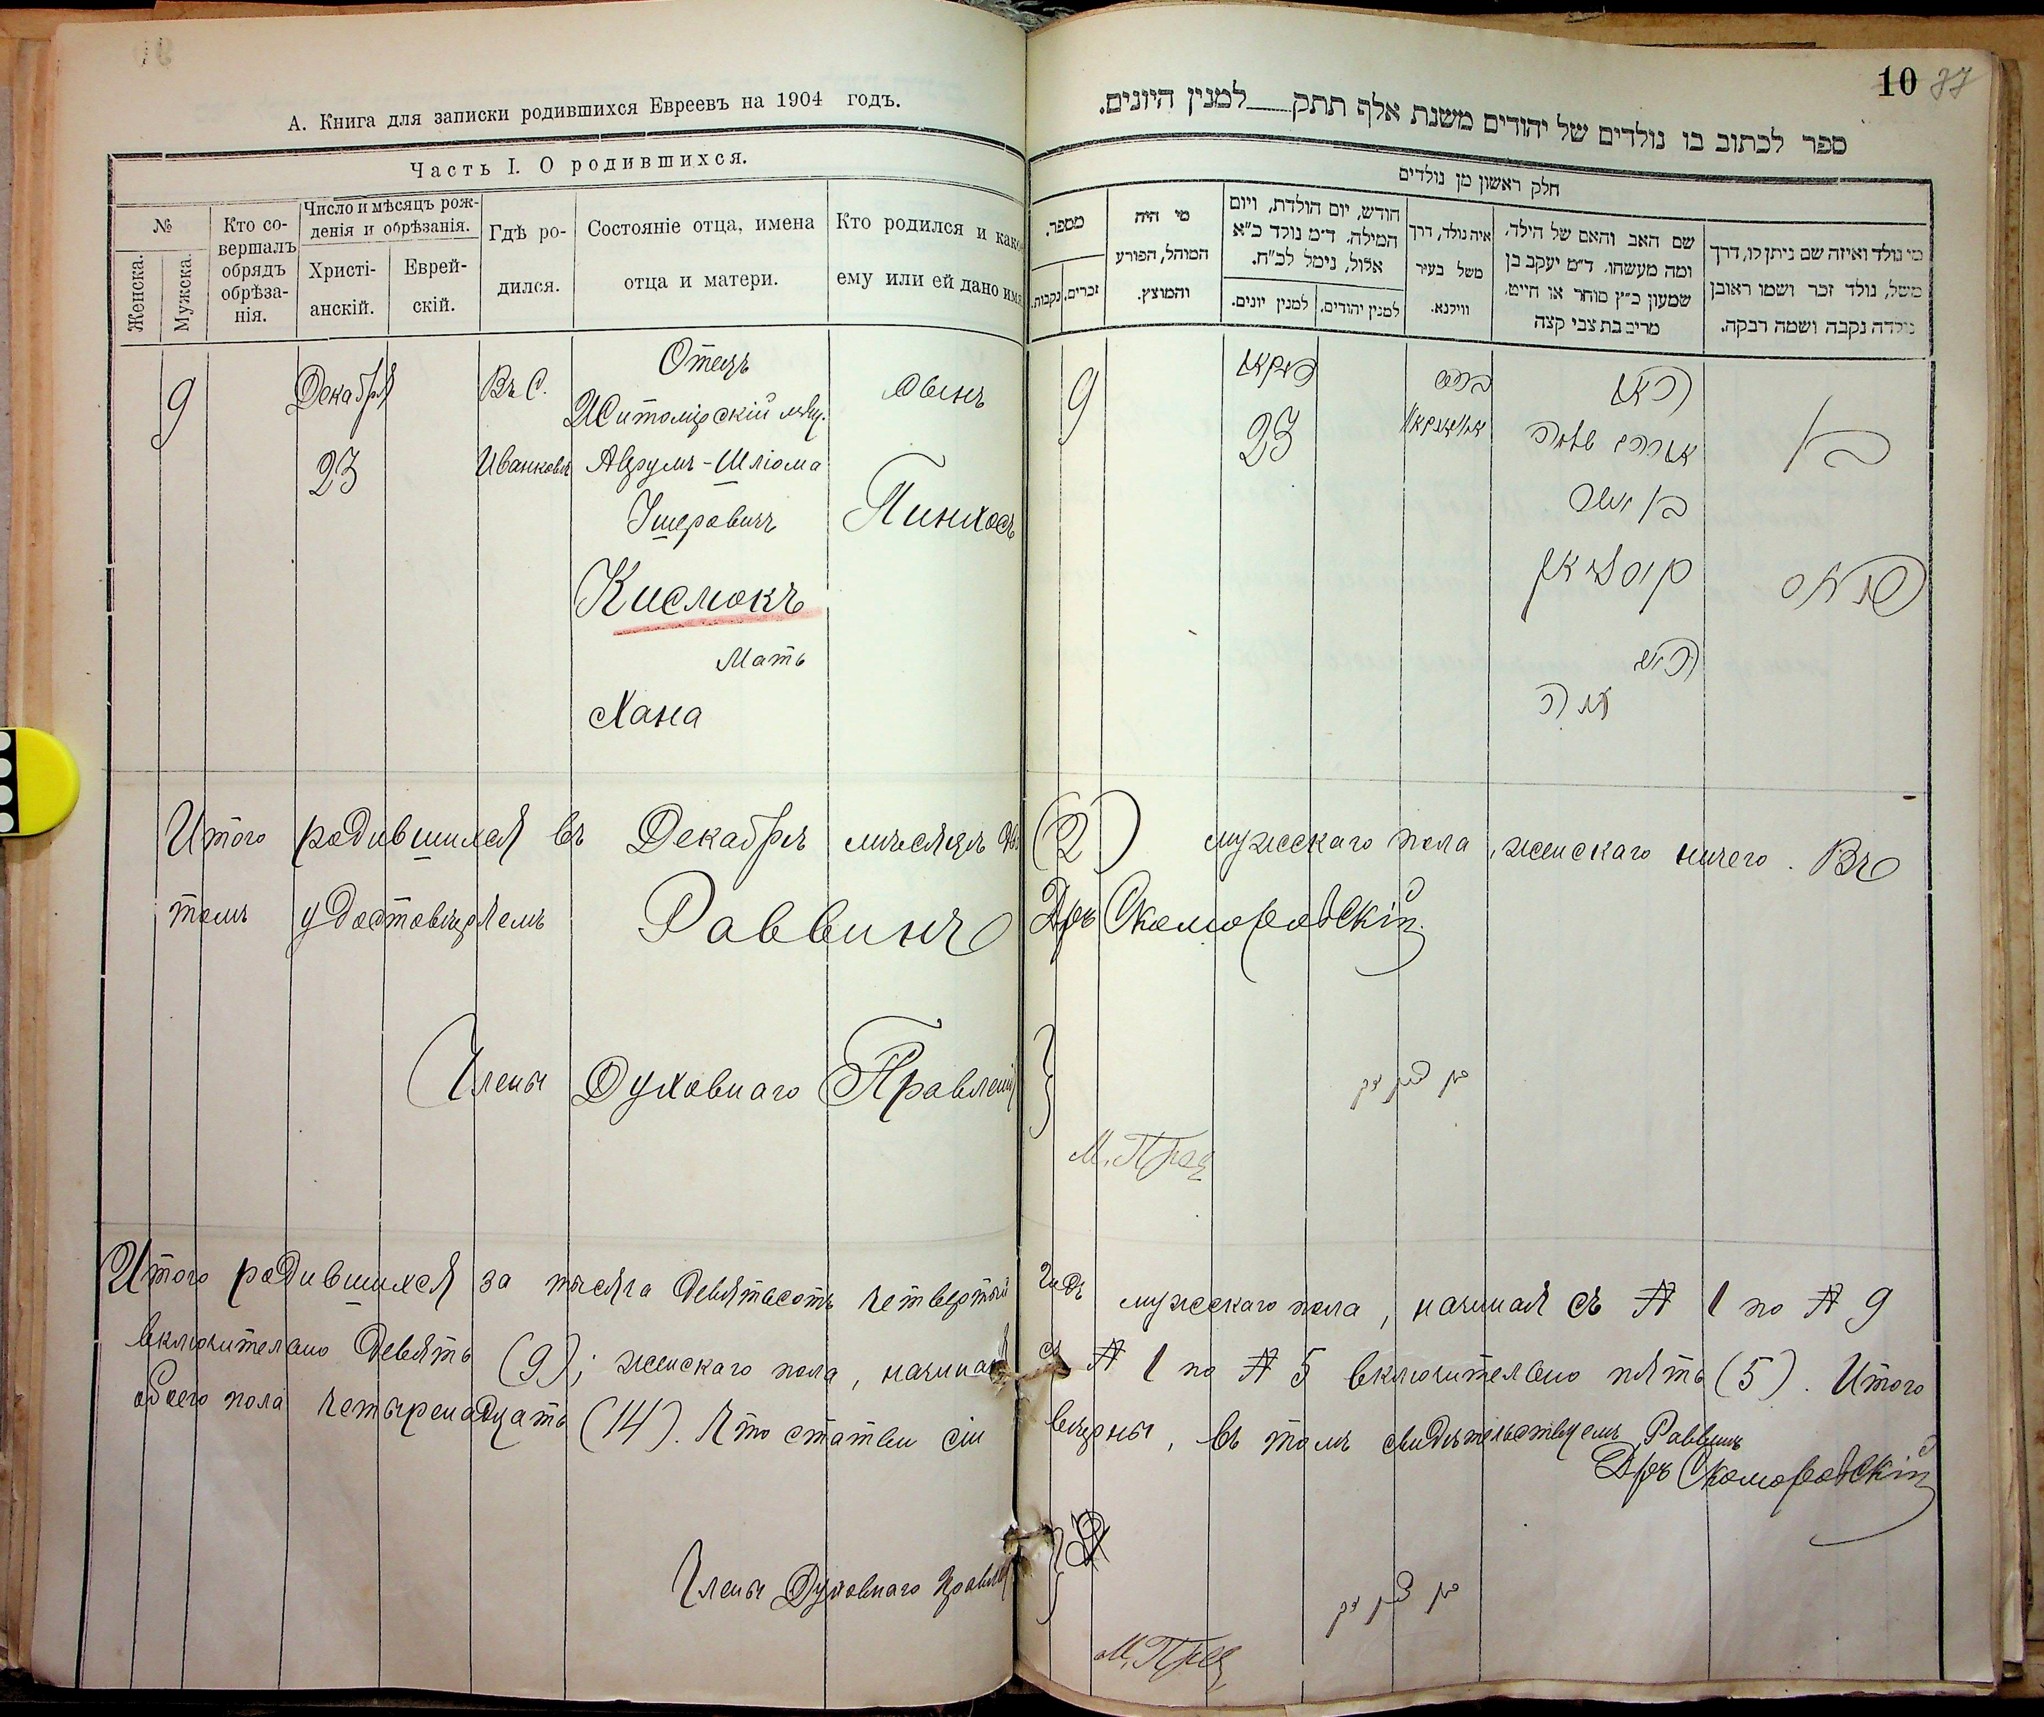 А. Книга для записки родившихся Евреевъ на 1904 годъ.
Часть I. О родившихся.
№
Женска.
Мужска.
Кто со-
вершалъ
обрядъ
обрѣза-
нія.
Число и мѣсяцъ рож-
денія и обрѣзанія.
Христі-
анскій.
Еврей-
скій.
Гдѣ ро-
дился.
Состояніе отца, имена
отца и матери.
Кто родился и како
ему или ей дано имя
9
Декабря
23
Въ С.
Иванковѣ
Отецъ
Житомірскій мѣщ.
Аврумъ-Шліома
Ушеровичъ
Кислюкъ
Мать
Хана
Сынъ
Пинхосъ
Итого родившихся въ Декабрѣ мѣсяцѣ два
томъ удостовѣряемъ Раввинъ
Члены Духовнаго Правленія
Итого родившихся за тысяча девятьсотъ четвертый
включительно девять (9); женскаго пола, начиная
обоего пола четырнадцать (14). Что статьи сіи
Члены Духовнаго Правлен
10 37
ספר לכתוב בו נולדים של יהודים משנת אלף תתק למנין היונים.
חלק ראשון מן נולדים
מספר.
זכרים.
נקבות.
מי היה
המוהל, הפורע
והמוצץ.
חודש, יום הולדת, ויום
המילה. ד״מ נולד כ״א
אלול, נימל לכ״ח.
למנין יהודים.
למנין יונים.
איה נולד, דרך
משל בעיר
ווילנא.
שם האב והאם של הילד.
ומה מעשהו. ד״מ יעקב בן
שמעון כ״ץ סוחר או חייט.
מרים בת צבי קצה
מי נולד ואיזה שם ניתן לו, דרך
משל, נולד זכר ושמו ראובן
נולדה נקבה ושמה רבקה.
9
23
האב
אברהם שלמה
בן אשר
קיסליוק
האם
חנה
בן
פנחס
(2) мужескаго пола, женскаго ничего. Въ
Дръ Скоморовскій
М. Прец
годъ мужескаго пола, начиная съ № 1 по № 9
съ № 1 по № 5 включительно пять (5). Итого
вѣрны, въ томъ свидѣтельствуемъ Раввинъ
Дръ Скоморовскій
М. Прец